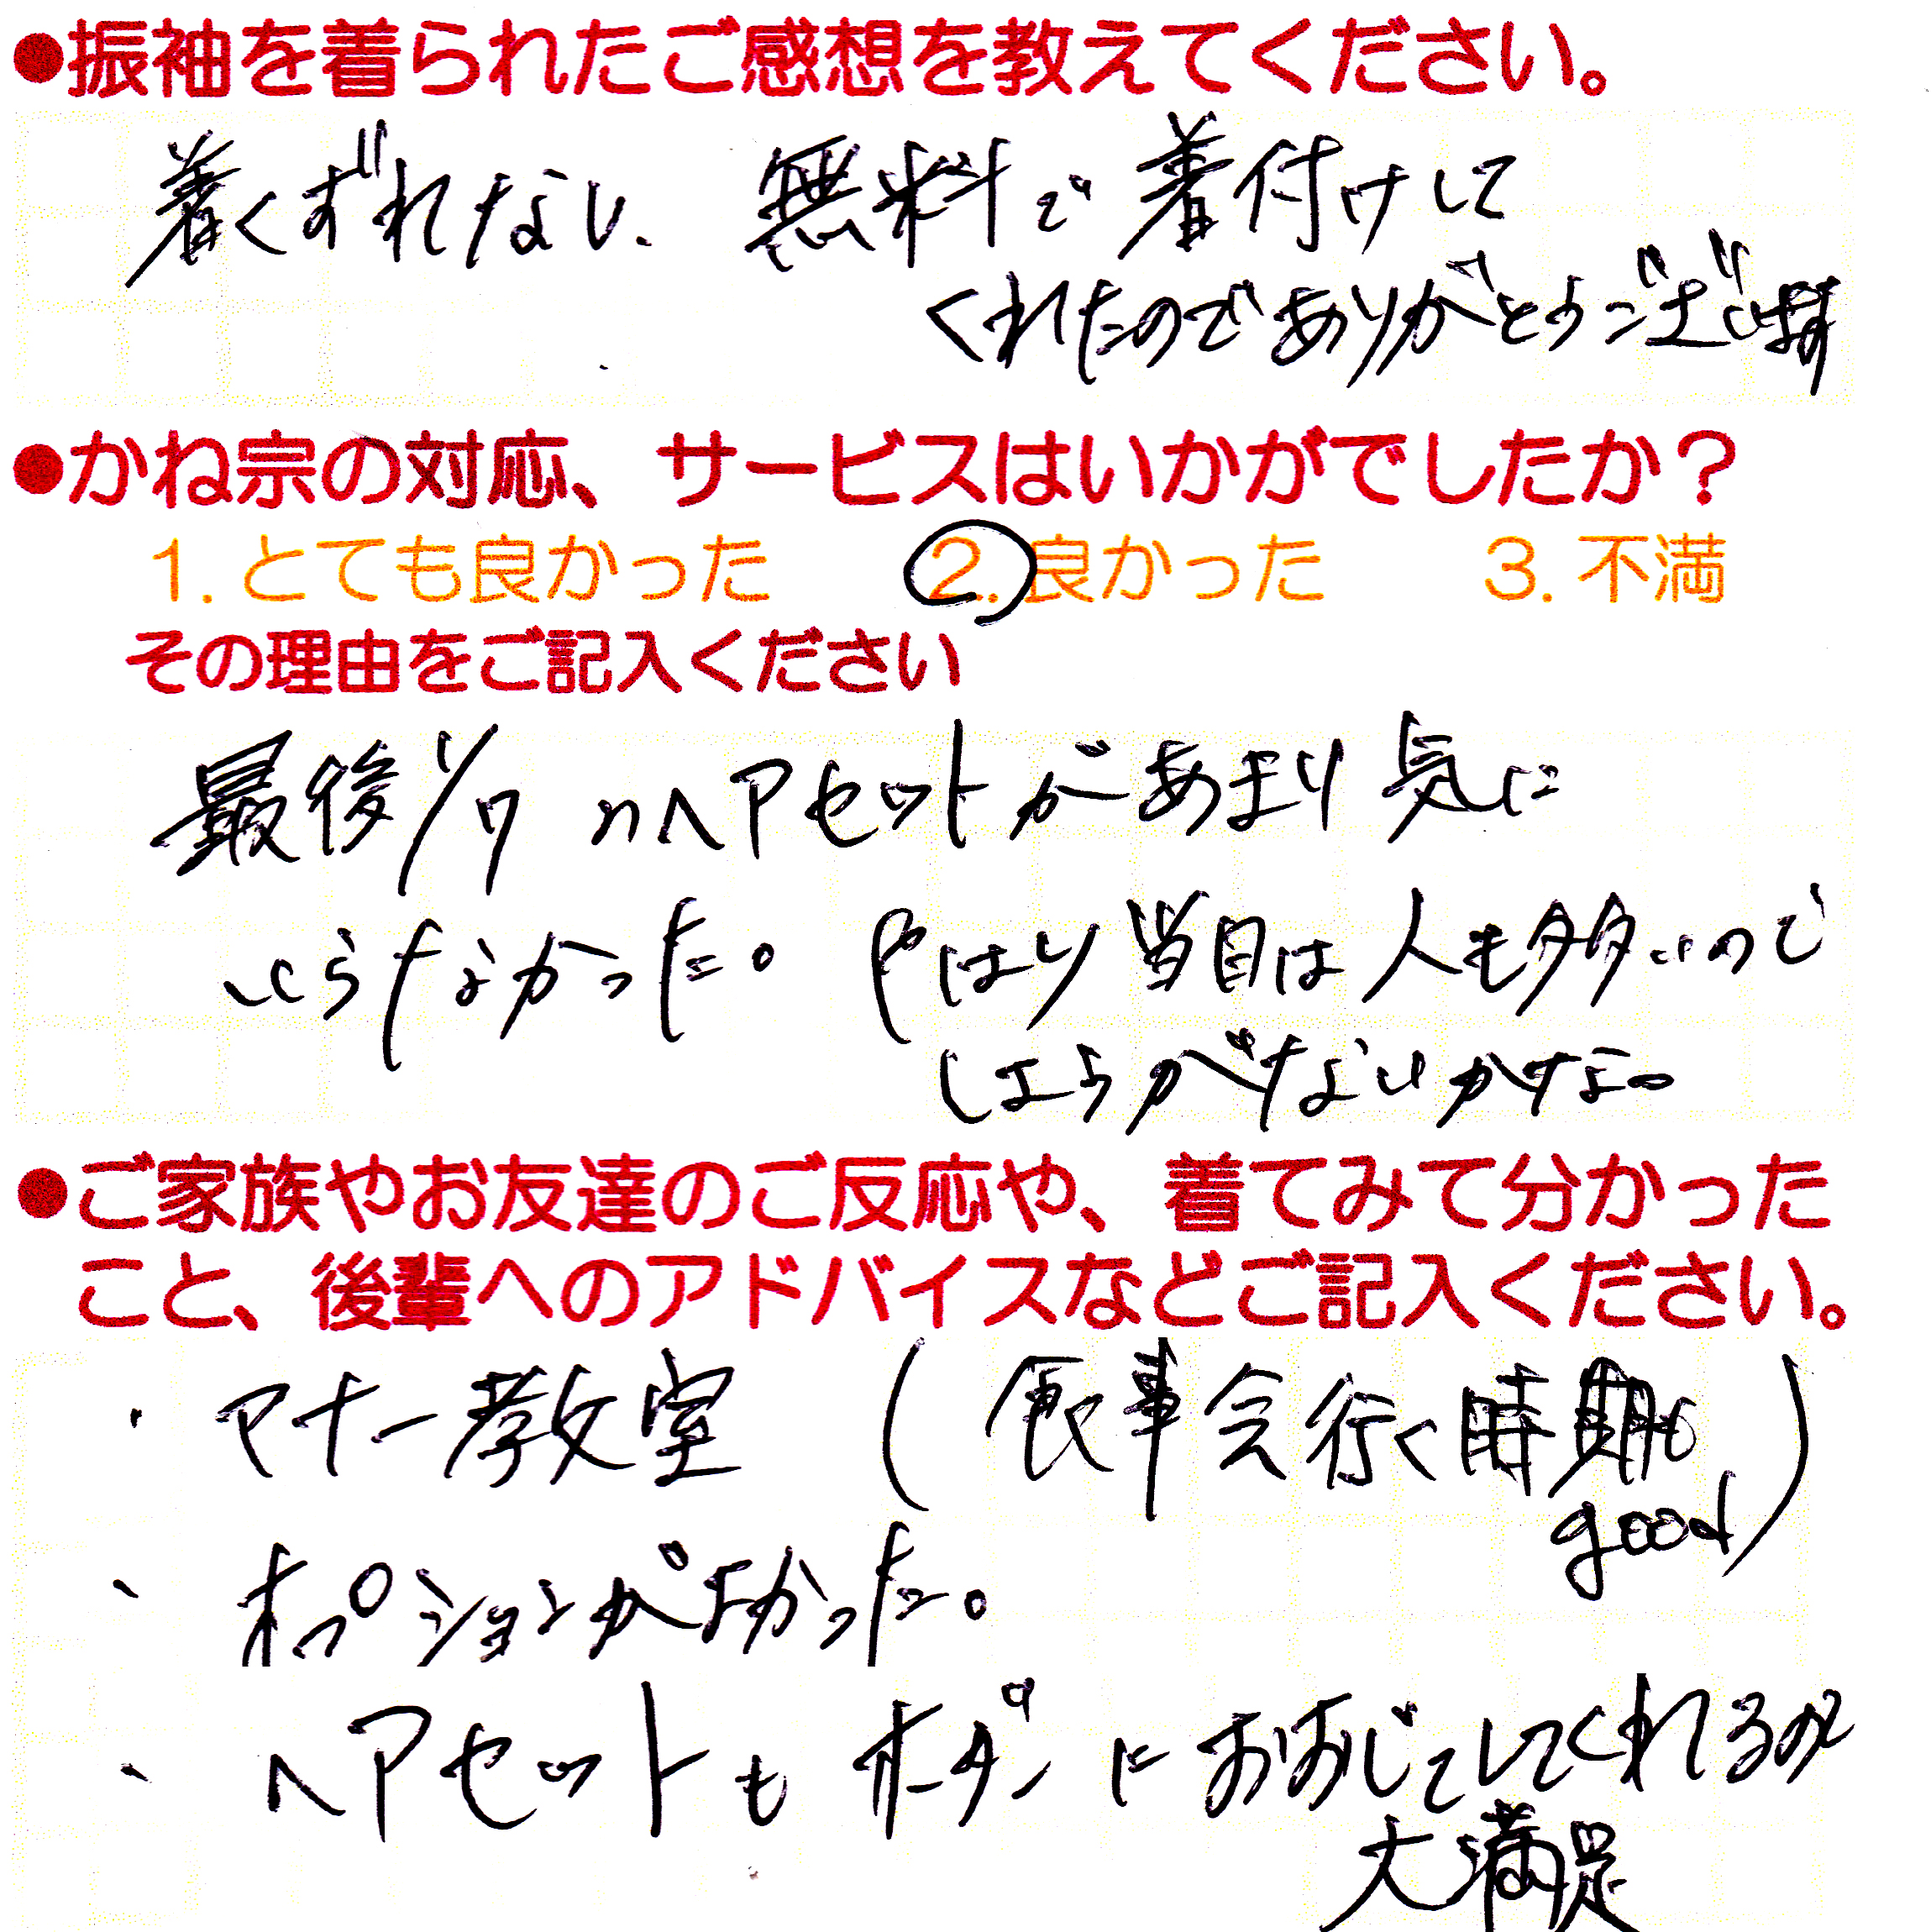 ●振袖を着られたご感想を教えてください。
着くずれなし、無料で着付けして
くれたのでありがとうございます
●かね宗の対応、サービスはいかがでしたか？
1. とても良かった 2. 良かった 3. 不満
その理由をご記入ください
最後1/7のヘアセットがあまり気に
いらなかった。やはり当日は人も多いので
しょうがないかな。
●ご家族やお友達のご反応や、着てみて分かった
こと、後輩へのアドバイスなどご記入ください。
・マナー教室 (食事会行く時期も
good)
・オプションがよかった。
・ヘアセットもオーダーにおおじてしてくれるが
大満足